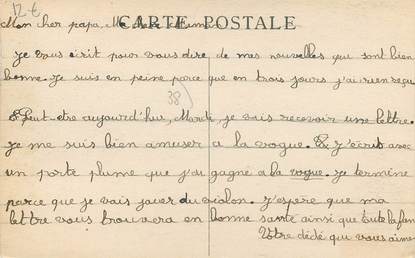 12 €
CARTE POSTALE
Mon cher papa, Ma chère Maman
Je vous écrit pour vous dire de mes nouvelles qui sont bien
bonne. Je suis en peine parce que en trois jours j'ai rien reçu
38)
Peut-etre aujourd'hui, Mardi, je vais recevoir une lettre.
Je me suis bien amuser a la vogue. Et j'écris avec
un porte plume que j'ai gagné a la vogue. Je termine
parce que je vais jouer du violon. J'espere que ma
lettre vous trouvera en bonne santé ainsi que toute la fam
Votre dédé qui vous aime